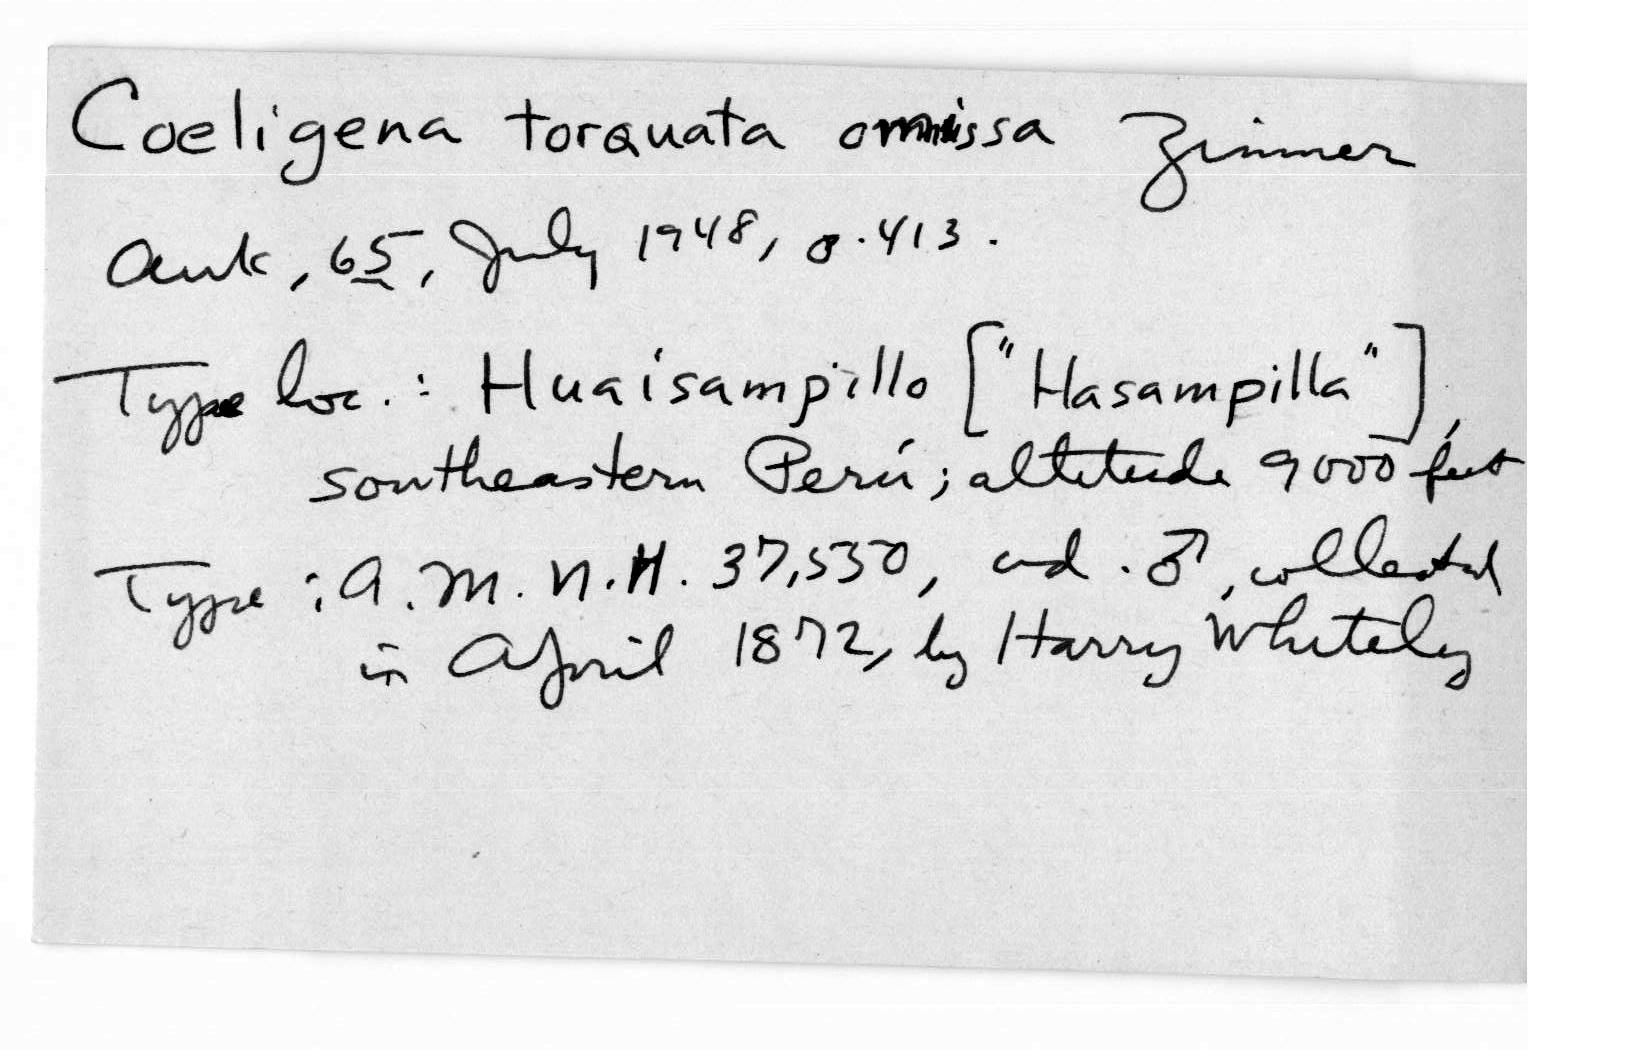 Coeligena torquata omissa Zimmer
Auk, 65, July 1948, p. 413.
Type loc.: Huaisampillo ["Hasampilla"],
southeastern Perú; altitude 9000 feet
Type: A.M.N.H. 37,530, ad. ♂, collected
in April 1872, by Harry Whitely